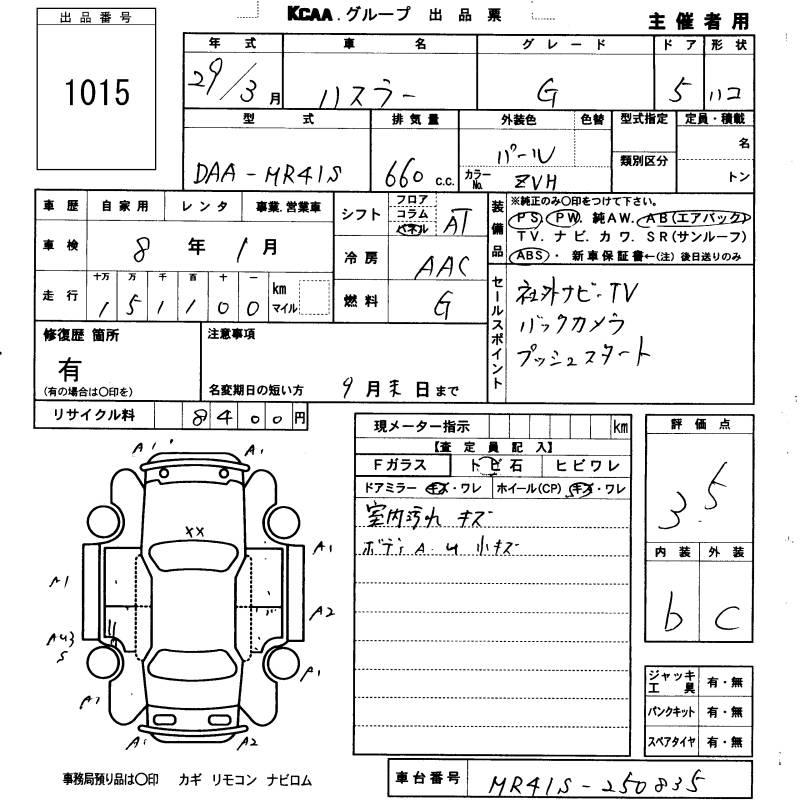 出品番号
1015
KCAA.グループ 出品票
主催者用
年式 車名 グレード ドア 形状
29/3月 ハスラー G 5 ハコ
型式 排気量 外装色 色替 型式指定 定員・積載
DAA-MR41S 660 c.c. パール 名
カラーNo. ZVH 類別区分 トン
車歴 自家用 レンタ 事業.営業車
車検 8年1月
走行 十万 万 千 百 十 一
151100 km マイル
シフト フロア コラム パネル AT
冷房 AAC
燃料 G
装備品
※純正のみ○印をつけて下さい。
PS. PW. 純AW. AB(エアバック)
TV. ナビ. カワ. SR(サンルーフ)
ABS・ 新車保証書←(注) 後日送りのみ
セールスポイント
社外ナビ・TV
バックカメラ
プッシュスタート
修復歴 箇所
有
(有の場合は○印を)
注意事項
名変期日の短い方 9月末日まで
リサイクル料 8400円
現メーター指示 km
【査定員記入】
Fガラス トビ石 ヒビワレ
ドアミラー キズ・ワレ ホイール(CP) キズ・ワレ
室内汚れ キズ
ボディA.U 小キズ
評価点
3.5
内装 外装
b C
ジャッキ工具 有・無
パンクキット 有・無
スペアタイヤ 有・無
A1 A1
XX
A1
A1
A2
AU3
S
A1
A1
A1 A2
事務局預り品は○印 カギ リモコン ナビロム
車台番号 MR41S-250835